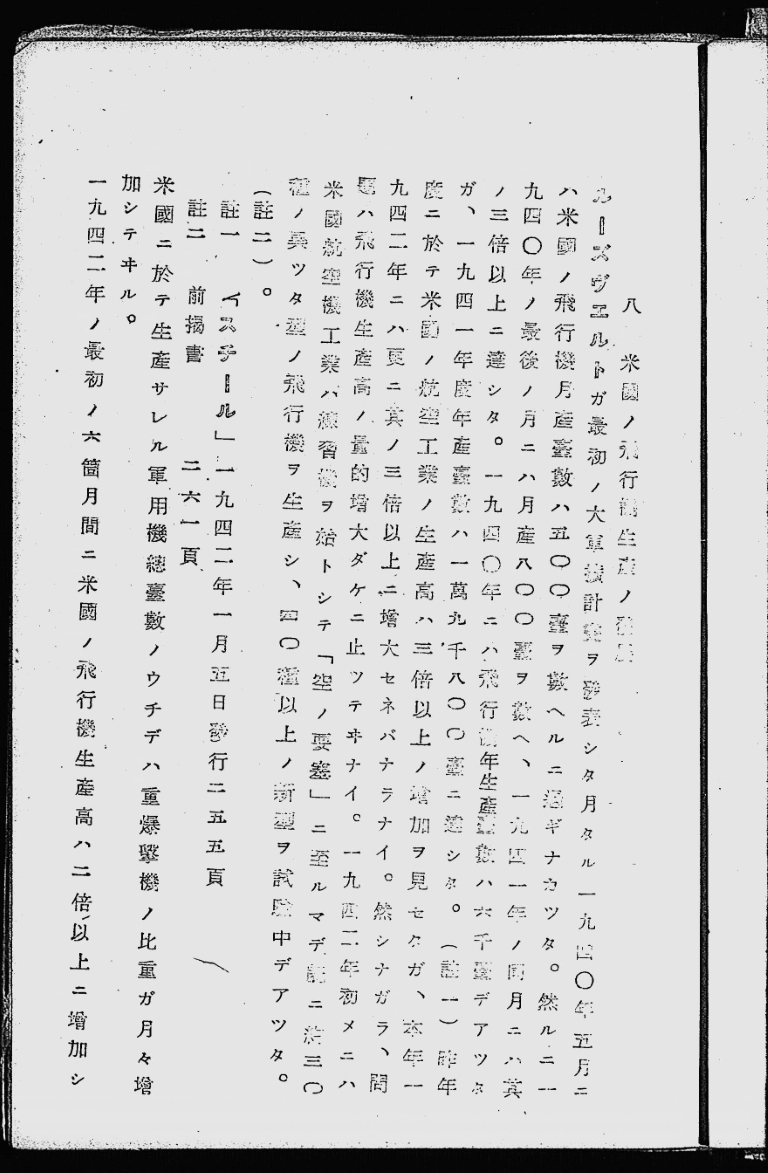 八　米國ノ飛行機生產ノ發展
ルーズヴェルトガ最初ノ大軍擴計畫ヲ發表シタ月タル一九四〇年五月ニ
ハ米國ノ飛行機月產臺數ハ五〇〇臺ヲ數ヘルニ過ギナカツタ。然ルニ一
九四〇年ノ最後ノ月ニハ月產八〇〇臺ヲ數ヘ、一九四一年ノ同月ニハ其
ノ三倍以上ニ達シタ。一九四〇年ニハ飛行機年生產臺數ハ六千臺デアツタ
ガ、一九四一年度年產臺數ハ一萬九千八〇〇臺ニ達シタ。（註一）昨年
度ニ於テ米國ノ航空工業ノ生產高ハ三倍以上ノ增加ヲ見セタガ、本年一
九四二年ニハ更ニ其ノ三倍以上ニ增大セネバナラナイ。然シナガラ、問
題ハ飛行機生產高ノ量的增大ダケニ止ツテヰナイ。一九四二年初メニハ
米國航空機工業ハ練習機ヲ始トシテ「空ノ要塞」ニ至ルマデ旣ニ約三〇
種ノ異ツタ型ノ飛行機ヲ生產シ、四〇種以上ノ新型ヲ試驗中デアツタ。
（註二）。
註一　「スチール」一九四二年一月五日發行二五五頁
註二　前揭書　　二六一頁
米國ニ於テ生產サレル軍用機總臺數ノウチデハ重爆擊機ノ比重ガ月々增
加シテヰル。
一九四二年ノ最初ノ六箇月間ニ米國ノ飛行機生產高ハ二倍以上ニ增加シ